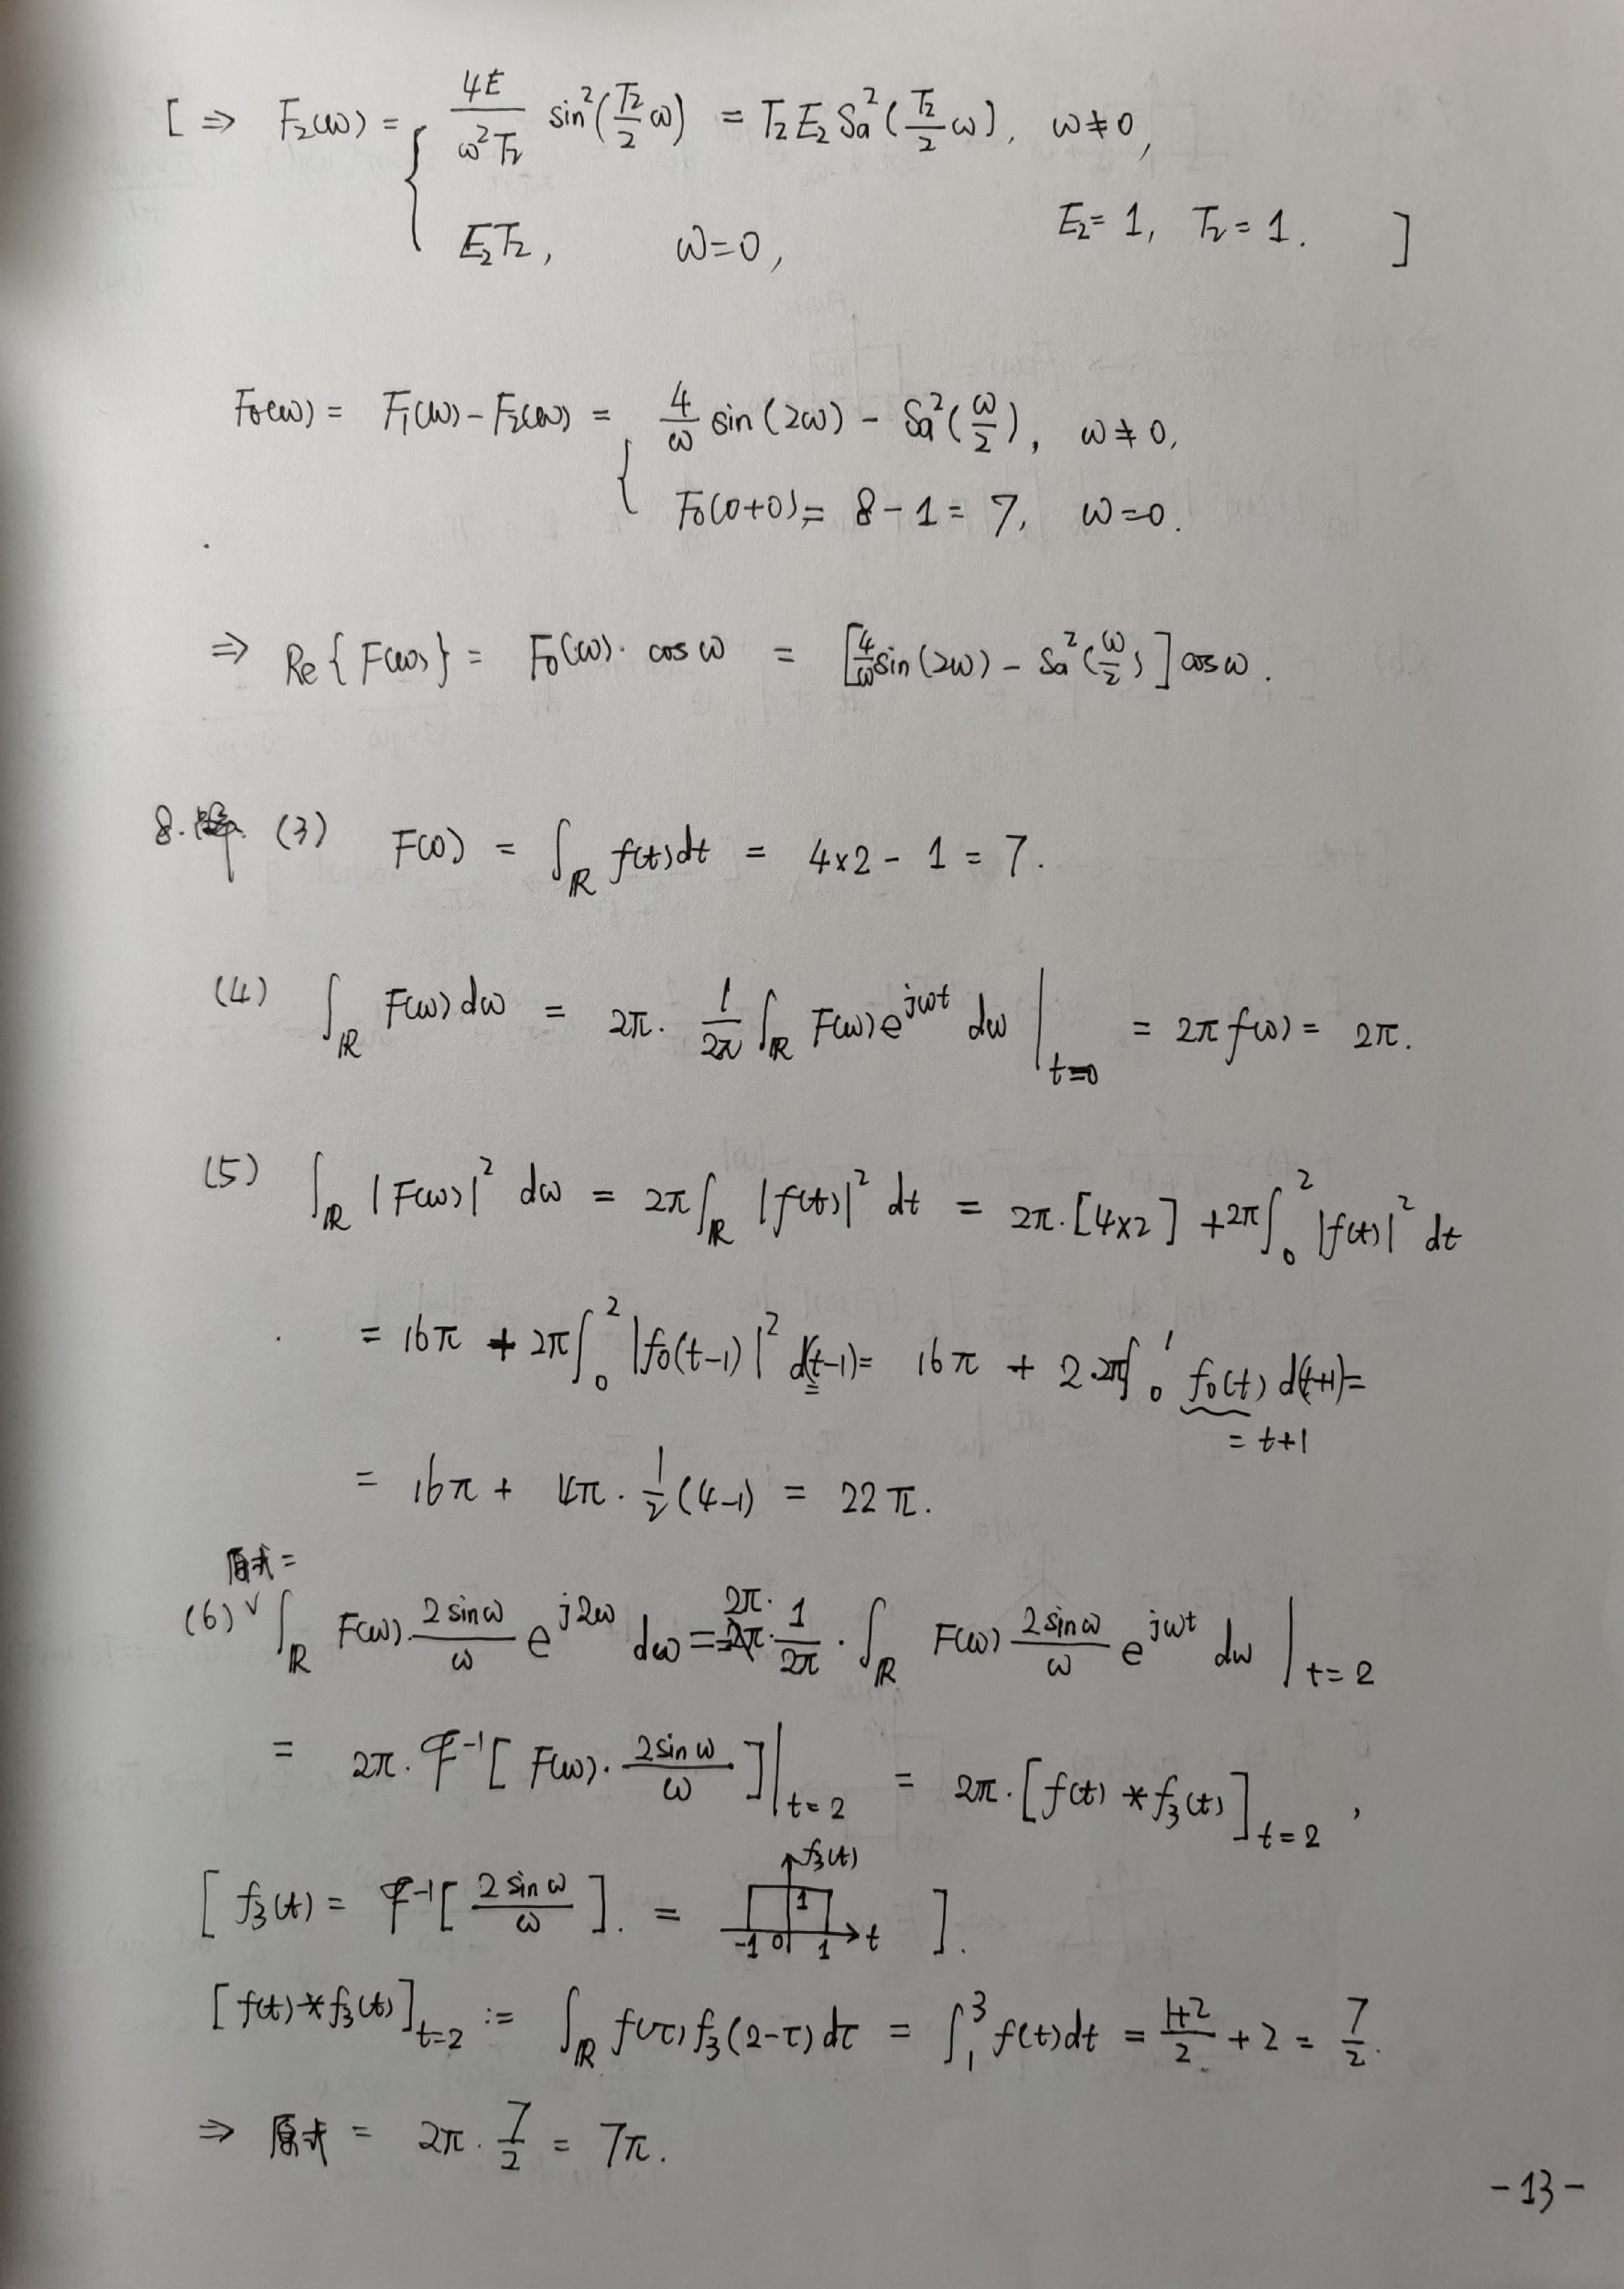 [ ⇒ F₂(ω) = { 4E/(ω²T₂) sin²(T₂/2 ω) = T₂E₂Sa²(T₂/2 ω), ω≠0,
E₂T₂, ω=0, E₂=1, T₂=1. ]
F₀(ω) = F₁(ω) − F₂(ω) = { 4/ω sin(2ω) − Sa²(ω/2), ω≠0,
F₀(0+0) = 8−1 = 7, ω=0.
⇒ Re{F(ω)} = F₀(ω)·cosω = [4/ω sin(2ω) − Sa²(ω/2)]cosω.
8. (3) F(0) = ∫_ℝ f(t)dt = 4×2 − 1 = 7.
(4) ∫_ℝ F(ω)dω = 2π· 1/2π ∫_ℝ F(ω)e^{jωt} dω |_{t=0} = 2πf(0) = 2π.
(5) ∫_ℝ |F(ω)|² dω = 2π∫_ℝ |f(t)|² dt = 2π·[4×2] + 2π∫₀² |f(t)|² dt
= 16π + 2π∫₀² |f₀(t−1)|² d(t−1) = 16π + 2·2π∫₀¹ f₀(t) d(t+1) =
= t+1
= 16π + 4π·1/2(4−1) = 22π.
原式=
(6) ∫_ℝ F(ω)·2sinω/ω e^{j2ω} dω = 2π·1/2π·∫_ℝ F(ω) 2sinω/ω e^{jωt} dω |_{t=2}
= 2π·ℱ⁻¹[F(ω)·2sinω/ω]|_{t=2} = 2π·[f(t)*f₃(t)]_{t=2},
f₃(t)
[f₃(t) = ℱ⁻¹[2sinω/ω]. = 1 t ].
-1 0 1
[f(t)*f₃(t)]_{t=2} := ∫_ℝ f(τ)f₃(2−τ)dτ = ∫₁³ f(t)dt = (1+2)/2 + 2 = 7/2.
⇒ 原式 = 2π·7/2 = 7π.
-13-